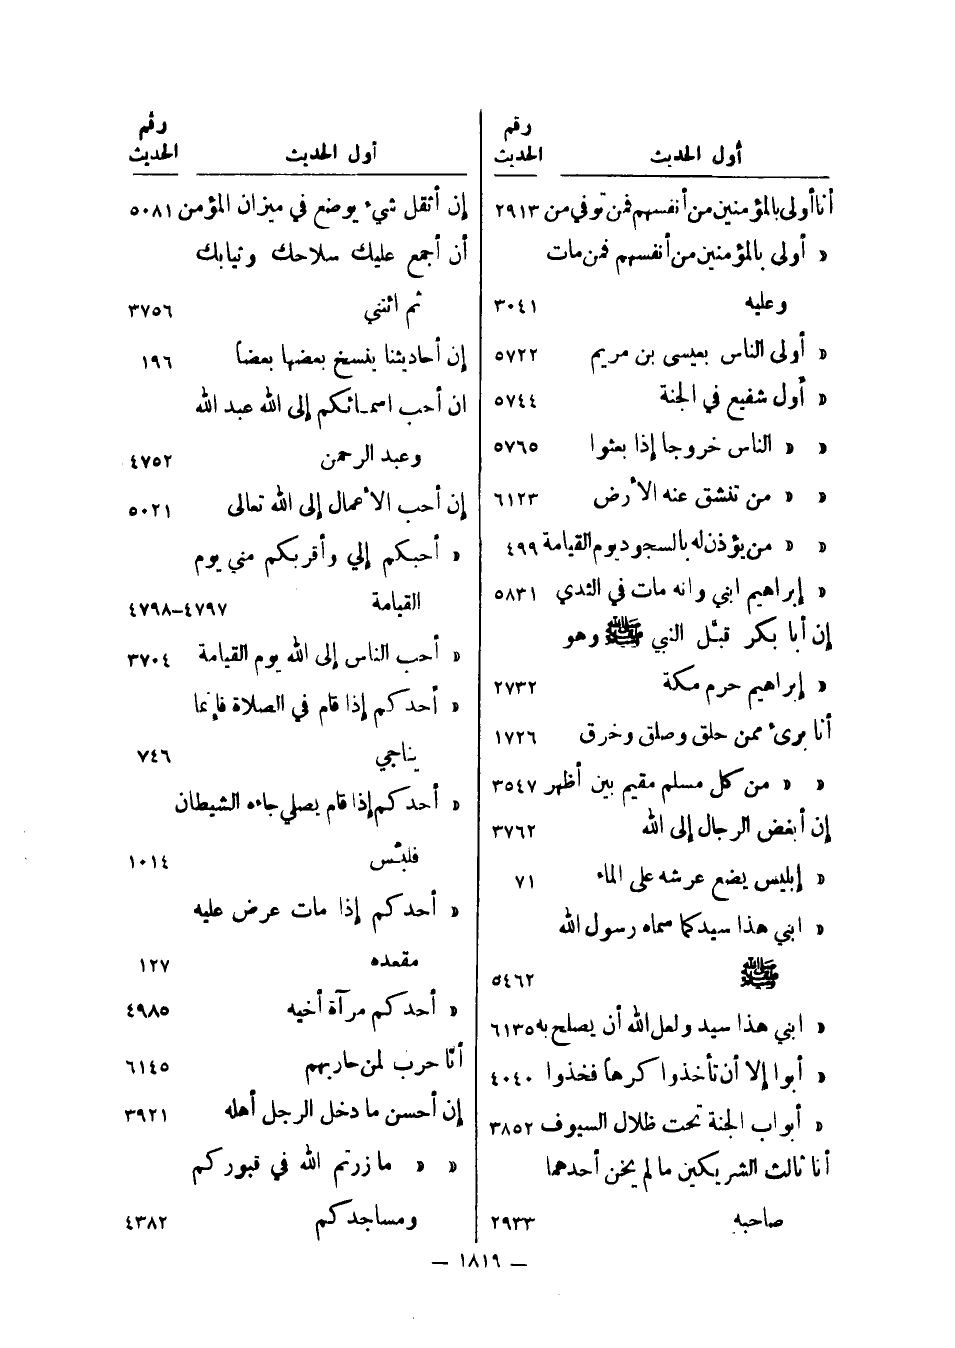 أول الحديث رقم الحديث
أنا أولى بالمؤمنين من أنفسهم فمن توفي من ٢٩١٣
« أولى بالمؤمنين من أنفسهم فمن مات
وعليه ٣٠٤١
« أولى الناس بعيسى بن مريم ٥٧٢٢
« أول شفيع في الجنة ٥٧٤٤
« « الناس خروجا إذا بعثوا ٥٧٦٥
« « من تنشق عنه الأرض ٦١٢٣
« « من يؤذن له بالسجود يوم القيامة ٤٩٩
« إبراهيم ابني وانه مات في الثدي ٥٨٣١
إن أبا بكر قبّل النبي ﷺ وهو
« إبراهيم حرم مكة ٢٧٣٢
أنا بريء ممن حلق وصلق وخرق ١٧٢٦
« « من كل مسلم مقيم بين أظهر ٣٥٤٧
إن أبغض الرجال إلى الله ٣٧٦٢
« إبليس يضع عرشه على الماء ٧١
« ابني هذا سيد كما سماه رسول الله
ﷺ ٥٤٦٢
« ابني هذا سيد ولعل الله أن يصلح به ٦١٣٥
« أبوا إلا أن تأخذوا كرهاً فخذوا ٤٠٤٠
« أبواب الجنة تحت ظلال السيوف ٣٨٥٢
أنا ثالث الشريكين ما لم يخن أحدهما
صاحبه ٢٩٣٣
أول الحديث رقم الحديث
إن أثقل شيء يوضع في ميزان المؤمن ٥٠٨١
أن أجمع عليك سلاحك وثيابك
ثم ائتني ٣٧٥٦
إن أحاديثنا ينسخ بعضها بعضاً ١٩٦
ان أحب اسمائكم إلى الله عبد الله
وعبد الرحمن ٤٧٥٢
إن أحب الأعمال إلى الله تعالى ٥٠٢١
« أحبكم إلي وأقربكم مني يوم
القيامة ٤٧٩٧–٤٧٩٨
« أحب الناس إلى الله يوم القيامة ٣٧٠٤
« أحدكم إذا قام في الصلاة فإنما
يناجي ٧٤٦
« أحدكم إذا قام يصلي جاءه الشيطان
فلبّس ١٠١٤
« أحدكم إذا مات عرض عليه
مقعده ١٢٧
« أحدكم مرآة أخيه ٤٩٨٥
أنّا حرب لمن حاربهم ٦١٤٥
إن أحسن ما دخل الرجل أهله ٣٩٢١
« « ما زرتم الله في قبوركم
ومساجدكم ٤٣٨٢
— ١٨١٩ —